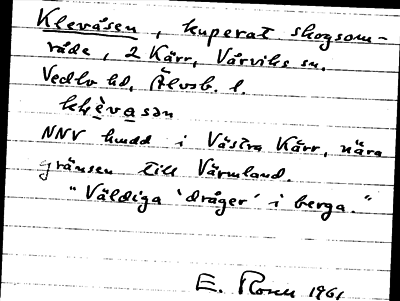 Klevåsen, kuperat skogsom-
råde, 2 Kärr, Vårviks sn.
Vedbo hd, Älvsb. l.
NNV hudd i Västra Kärr, nära
gränsen till Värmland.
"Väldiga 'dråger' i berga."
E. Rosen 1961